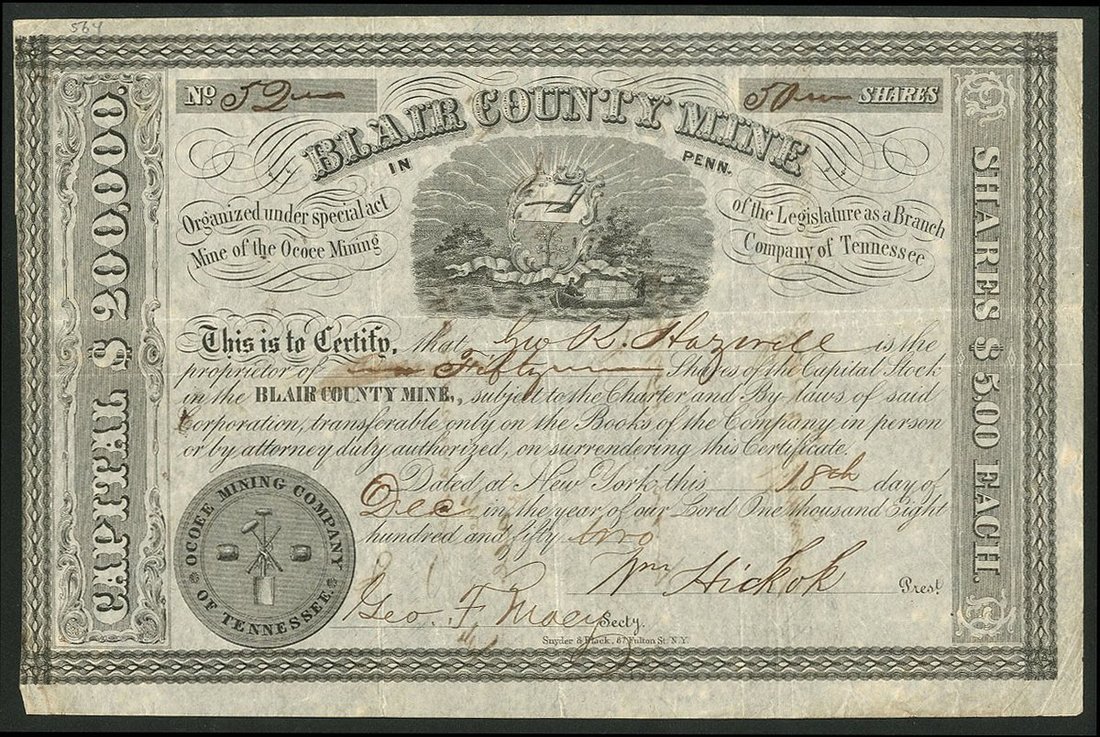 564
No 52
50 SHARES
BLAIR COUNTY MINE
IN PENN.
Organized under special act of the Legislature as a Branch
Mine of the Ococee Mining Company of Tennessee
CAPITAL $ 200,000.
SHARES $ 5,00 EACH.
This is to Certify, that Geo R. Hazwell is the
proprietor of Fifty Shares of the Capital Stock
in the BLAIR COUNTY MINE,, subject to the Charter and By laws of said
Corporation, transferable only on the Books of the Company in person
or by attorney duty authorized, on surrendering this Certificate.
Dated at New York this 18th day of
Dec in the year of our Lord One thousand Eight
hundred and fifty two
OCOEE MINING COMPANY
OF TENNESSEE.
Wm Hickok Prest
Geo. F. Secty.
Snyder & Black, 87 Fulton St. N.Y.